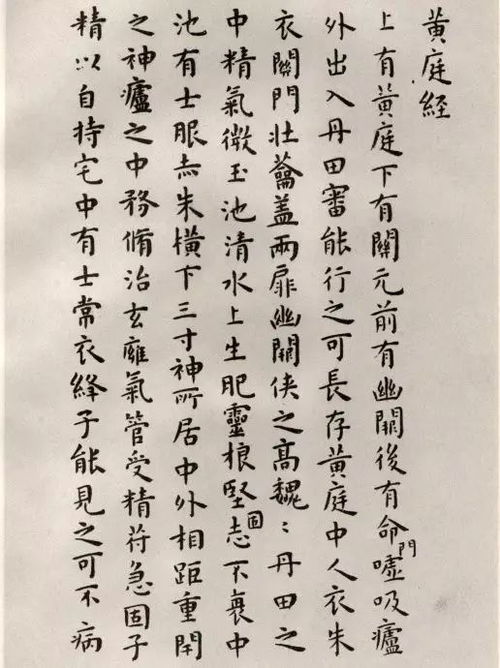 黃庭経
上有黃庭下有關元前有幽關後有命門噓吸廬
外出入丹田審能行之可長存黃庭中人衣朱
衣關門壯蘥盖兩扉幽關俠之高魏〻丹田之
中精氣微玉池清水上生肥靈根堅固志不衰中
池有士服赤朱橫下三寸神所居中外相距重閇
之神廬之中務脩治玄廱氣管受精苻急固子
精以自持宅中有士常衣絳子能見之可不病